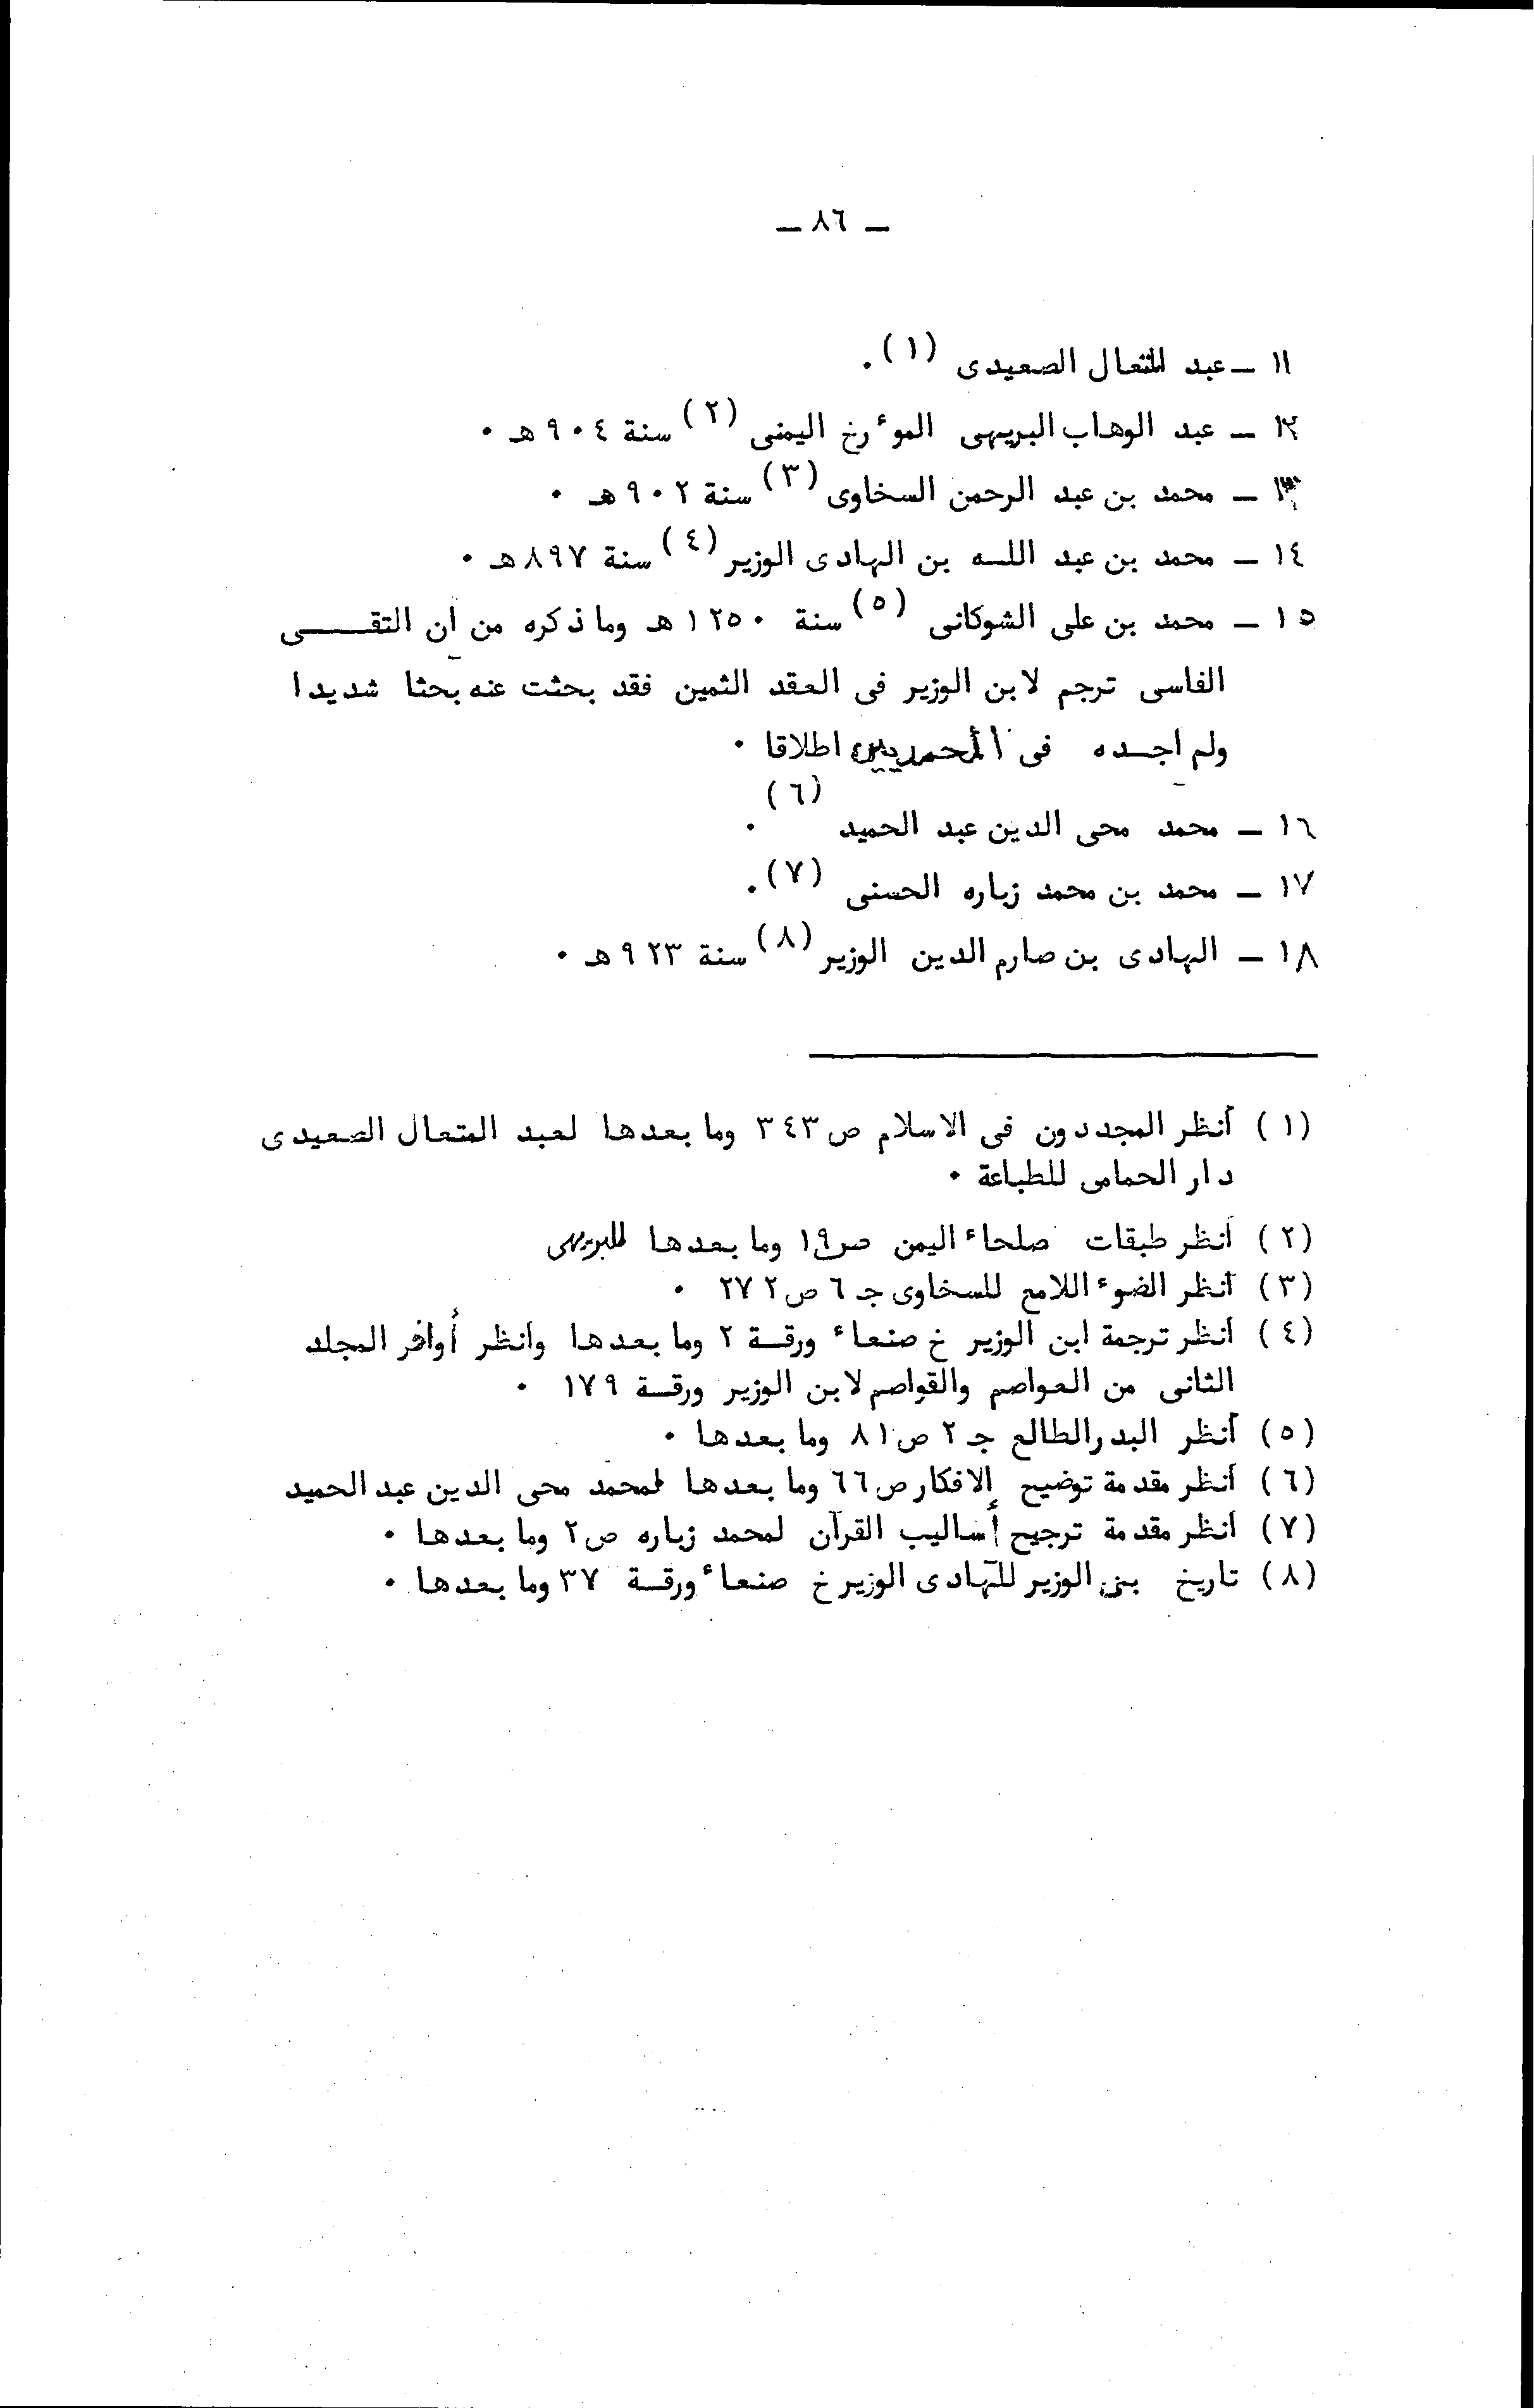 ـ ٨٦ ـ
١١ ـ عبد المتعال الصعيدى (١) .
١٢ ـ عبد الوهاب البريهى الموءرخ اليمنى (٢) سنة ٩٠٤ هـ .
١٣ ـ محمد بن عبد الرحمن السخاوى (٣) سنة ٩٠٢ هـ .
١٤ ـ محمد بن عبد اللـه بن الهادى الوزير (٤) سنة ٨٩٧ هـ .
١٥ ـ محمد بن على الشوكانى (٥) سنة ١٢٥٠ هـ وما ذكره من أن التقـــى
الفاسى ترجم لابن الوزير فى العقد الثمين فقد بحثت عنه بحثا شديدا
ولم اجـده فى المحمديين اطلاقا .
١٦ ـ محمد محى الدين عبد الحميد (٦) .
١٧ ـ محمد بن محمد زباره الحسنى (٧) .
١٨ ـ الهادى بن صارم الدين الوزير (٨) سنة ٩٢٣ هـ .
(١) أنظر المجددون فى الاسلام ص ٣٤٣ وما بعدها لعبد المتعال الصعيدى
دار الحمامى للطباعة .
(٢) أنظر طبقات صلحاء اليمن ص ١٩ وما بعدها للبريهى
(٣) أنظر الضوء اللامع للسخاوى جـ ٦ ص ٢٧٢ .
(٤) أنظر ترجمة ابن الوزير خ صنعاء ورقـة ٢ وما بعدها وانظر أواخر المجلد
الثانى من العواصم والقواصم لابن الوزير ورقـة ١٧٩ .
(٥) أنظر البدر الطالع جـ ٢ ص ٨١ وما بعدها .
(٦) أنظر مقدمة توضيح الافكار ص ٦٦ وما بعدها لمحمد محى الدين عبد الحميد
(٧) أنظر مقدمة ترجيح أساليب القرآن لمحمد زباره ص ٢ وما بعدها .
(٨) تاريخ بنى الوزير للهادى الوزير خ صنعاء ورقـة ٣٧ وما بعدها .